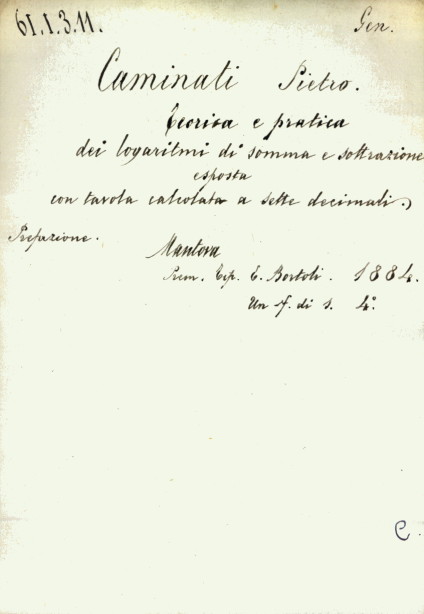 61.1.3.11.
Gen.
Caminati Pietro.
Teorica e pratica
dei logaritmi di somma e sottrazione
esposta
con tavola calcolata a sette decimali.)
Prefazione.
Mantova
Prem. Tip. E. Bortoli. 1884.
Un f. di s. 4°.
C.